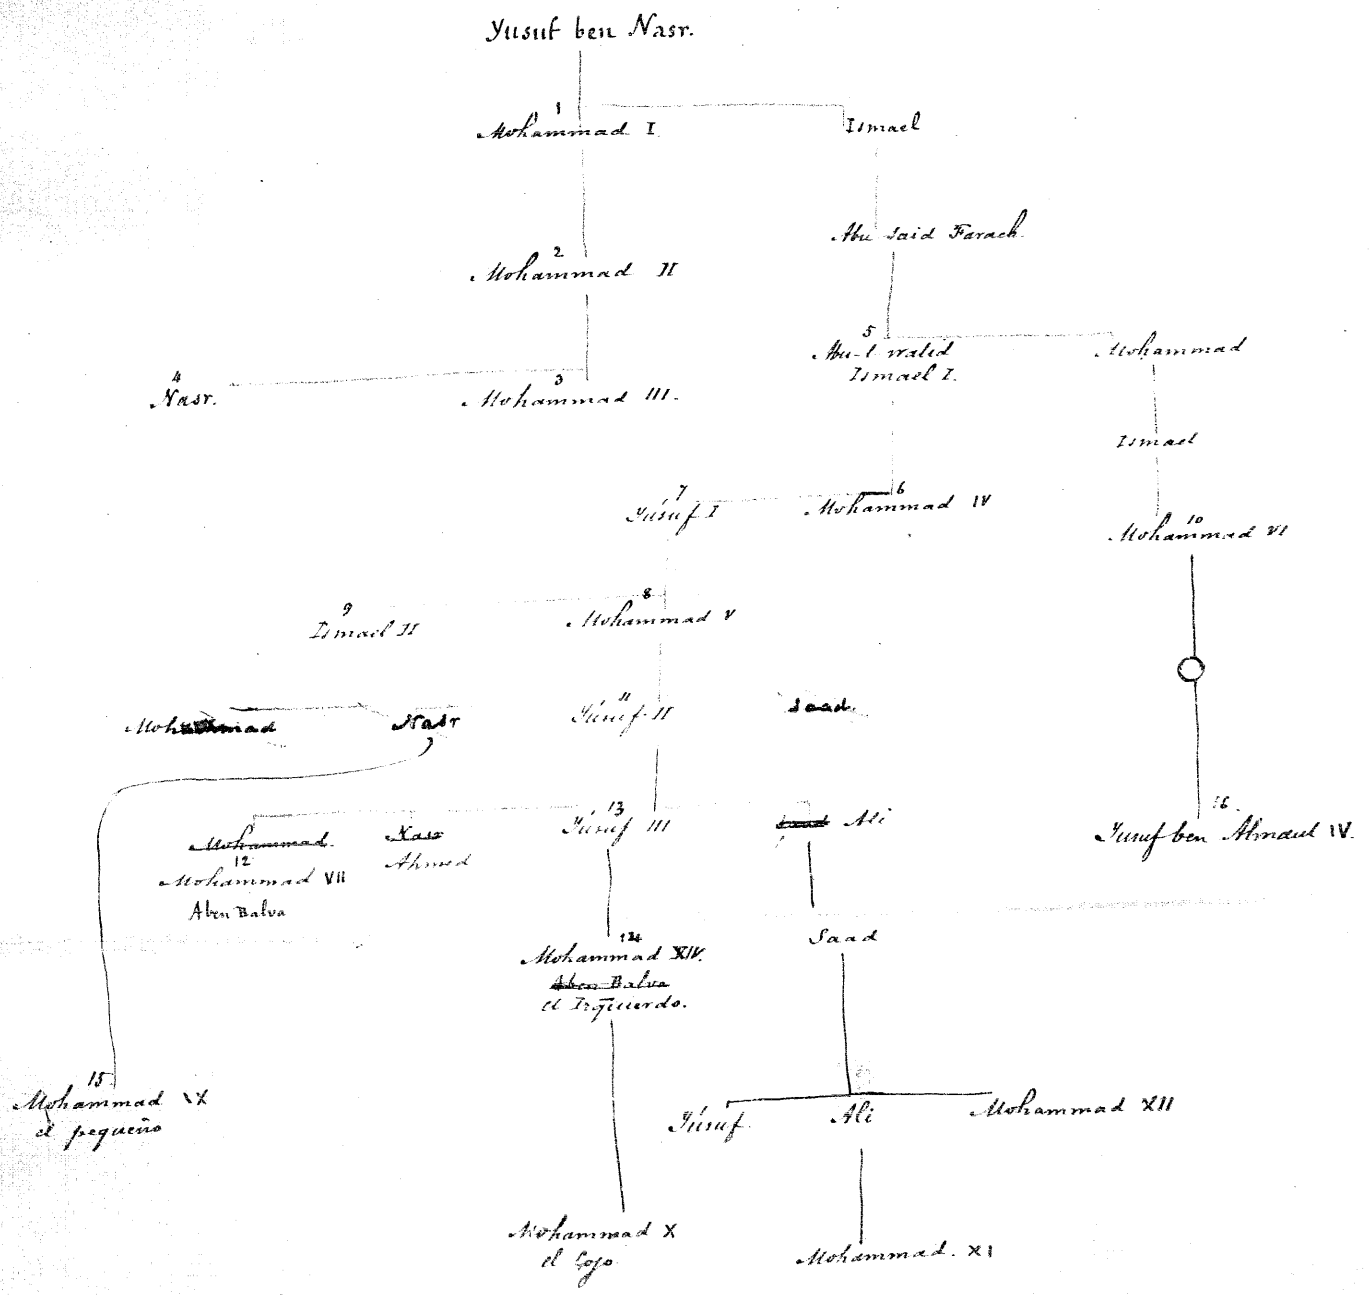 Yusuf ben Nasr.
1
Mohammad I
Ismael
Abu Said Farach.
2
Mohammad II
5
Abu-l walid
Ismael I.
Mohammad
4
Nasr.
3
Mohammad III.
Ismael
7
Yúsuf I
6
Mohammad IV
10
Mohammad VI
9
Ismail II
8
Mohammad V
Mohammad
Nasr
11
Yúsuf II
Saad.
Mohammad.
12
Mohammad VII
Aben Balva
Nasr
Ahmed
13
Yúsuf III
Saad Ali
16.
Yusuf ben Almaul IV.
14
Mohammad XIV.
Aben Balva
el Izquierdo.
Saad
15
Mohammad IX
el pequeño
Yúsuf.
Ali
Mohammad XII
Mohammad X
el Cojo
Mohammad. XI